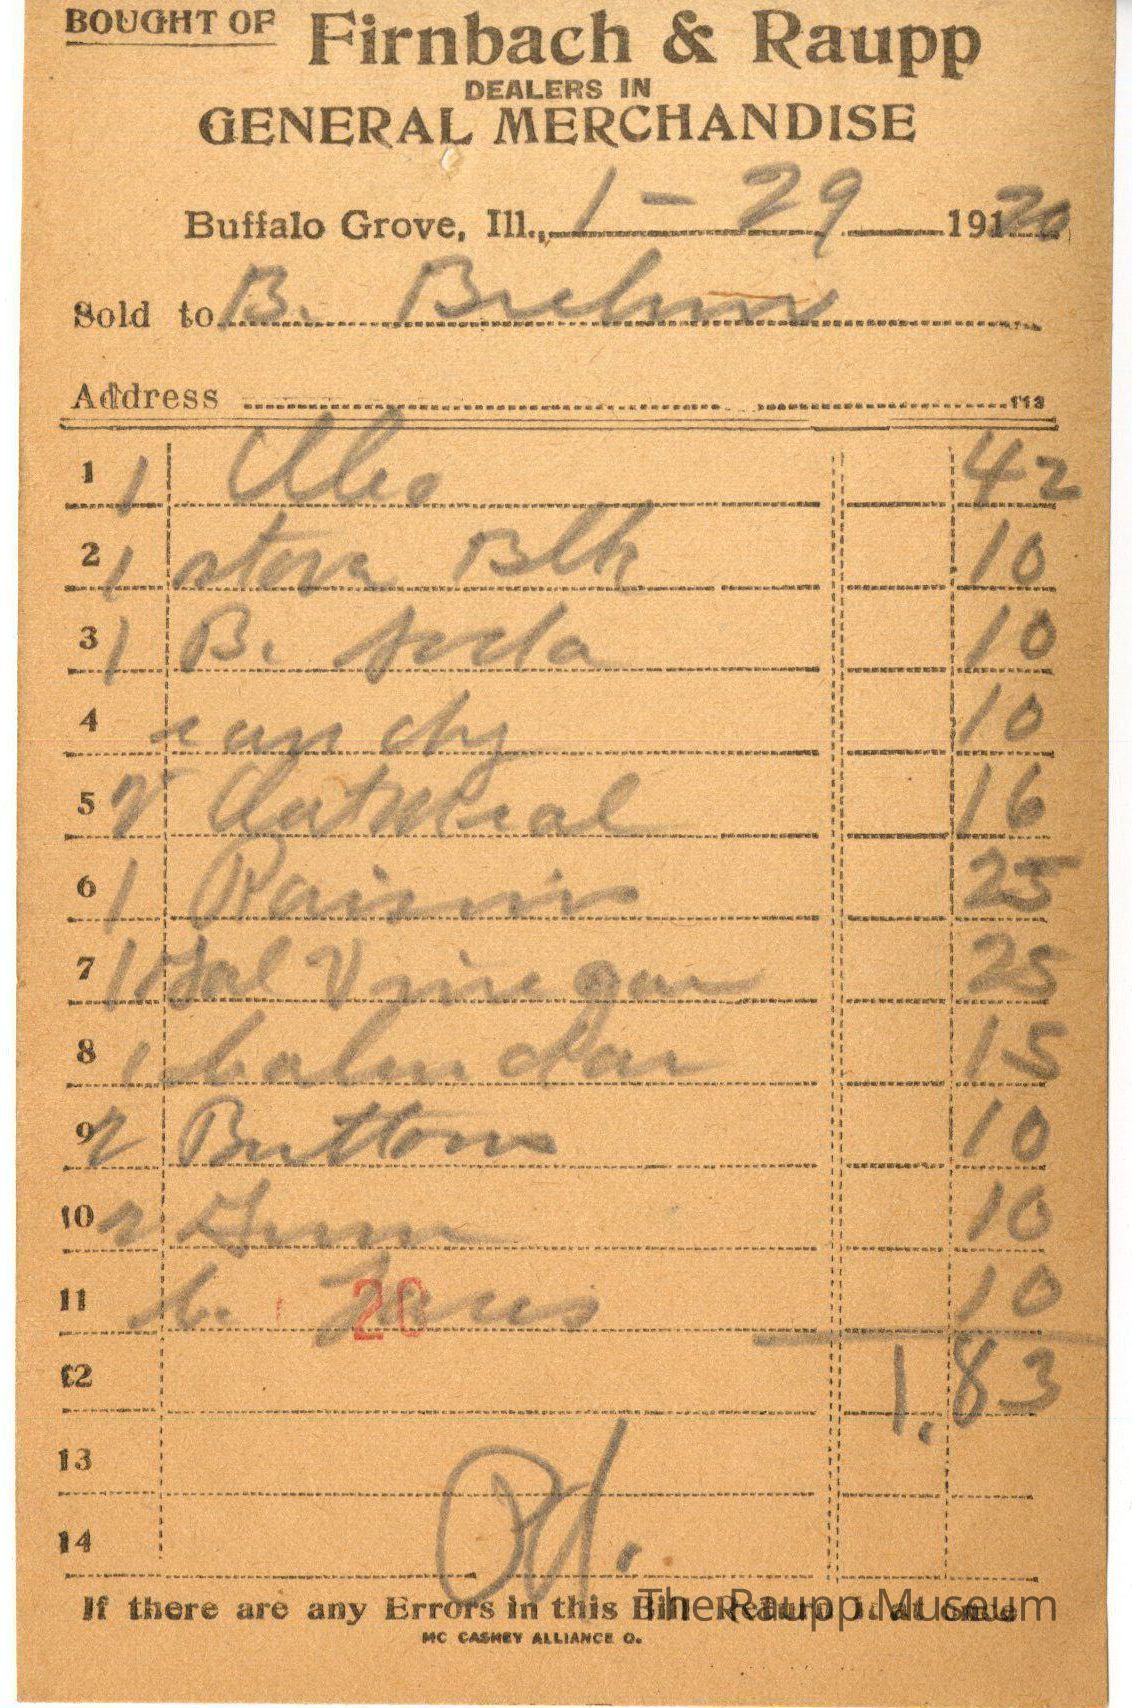 BOUGHT OF Firnbach & Raupp
DEALERS IN
GENERAL MERCHANDISE
Buffalo Grove, Ill., 1-29 191 20
Sold to B. Brehm
Address 113
1 1 42
2 1 stove Blk 10
3 1 B. soda 10
4 candy 10
5 2 Oatmeal 16
6 1 Raisins 25
7 1 Gal Vinegar 25
8 1 Calendar 15
9 2 Buttons 10
10 2 Gum 10
11 20 10
12 1.83
13
14 Pd.
If there are any Errors in this Bill Return it at once
The Raupp Museum
MC CASKEY ALLIANCE O.